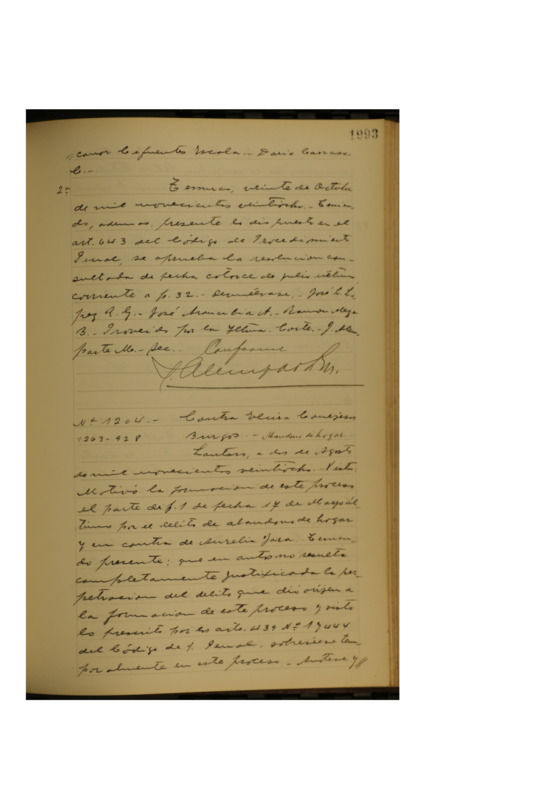 1993
canor Cifuentes Escala.- Dario Carrasco
C.-
2ª Temuco, veinte de Octubre
de mil novecientos veintiocho.- Tenien-
do, ademas, presente lo dispuesto en el
art. 643 del Código de Procedimiento
Penal, se aprueba la resolucion con-
sultada de fecha catorce de julio último
corriente a f. 32.- Devuélvase.- José L. Ló-
pez A. G.- José Arancibia A.- Ramon
B.- Proveido por la Iltma. Corte.-
parte M.- Sec.- Conforme
Nº 1204.- Contra Elvira
1263-928 Burgos - Abandono de hogar.-
Lautaro, a dos de Agosto
de mil novecientos veintiocho. Vistos:
Motivó la formacion de este proceso
el parte de f. 1 de fecha 17 de Mayo úl
timo por el delito de abandono de hogar
y en contra de Aurelia Jara. Tenien-
do presente: que en autos no resulta
completamente justificada la per-
petracion del delito que dio orígen a
la formacion de este proceso y visto
lo prescrito por los arts. 439 Nº 1 y 444
del Código de P. Penal, sobresiese tem-
poralmente en este proceso.-